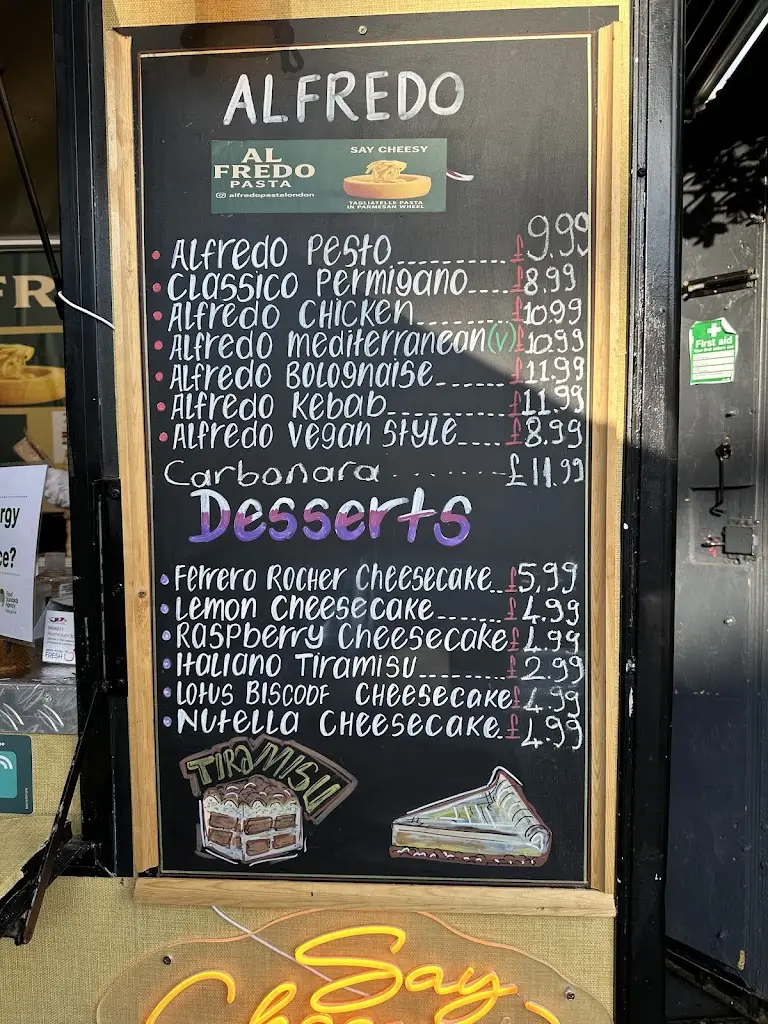 ALFREDO
AL FREDO PASTA
alfredopastalondon
SAY CHEESY
TAGLIATELLE PASTA
IN PARMESAN WHEEL
• Alfredo Pesto £9.99
• Classico Permigano £8.99
• Alfredo CHICKEN £10.99
• Alfredo Mediterranean(v) £10.99
• Alfredo Bolognaise £11.99
• Alfredo Kebab £11.99
• Alfredo Vegan Style £8.99
Carbonara £11.99
Desserts
• Ferrero Rocher Cheesecake £5,99
• Lemon Cheesecake £4.99
• Raspberry Cheesecake £4.99
• Italiano Tiramisu £2.99
• Lotus Biscoof Cheesecake £4.99
• Nutella Cheesecake £4.99
TIRAMISU
Say
First aid
FR
rgy
ce?
FRESH